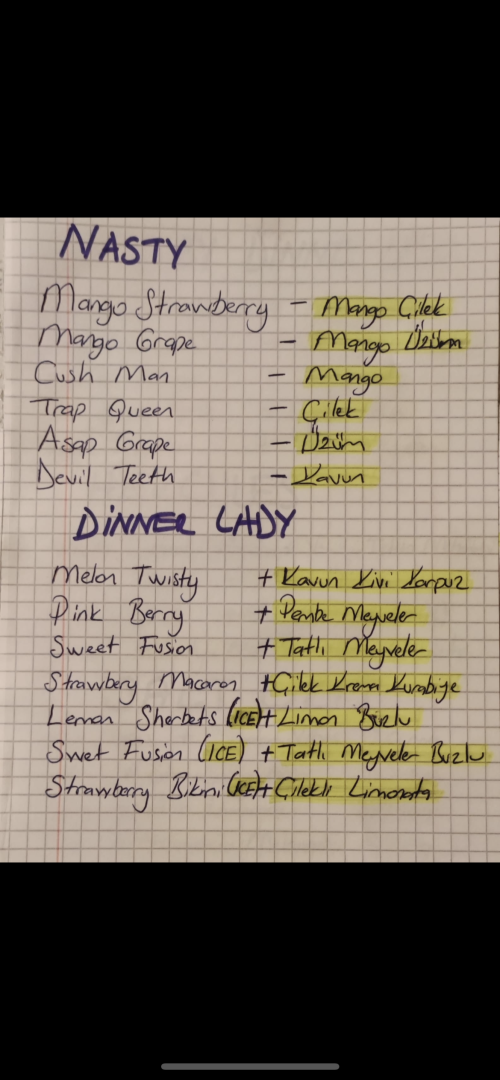 NASTY
Mango Strawberry - Mango Çilek
Mango Grape - Mango Üzüm
Cush Man - Mango
Trap Queen - Çilek
Asap Grape - Üzüm
Devil Teeth - Kavun
DİNNER LADY
Melon Twisty + Kavun Kivi Karpuz
Pink Berry + Pembe Meyveler
Sweet Fusion + Tatlı Meyveler
Strawbery Macaron + Çilek Krema Kurabiye
Lemon Sherbets (ICE) + Limon Buzlu
Swet Fusion (ICE) + Tatlı Meyveler Buzlu
Strawberry Bikini (ICE) + Çilekli Limonata